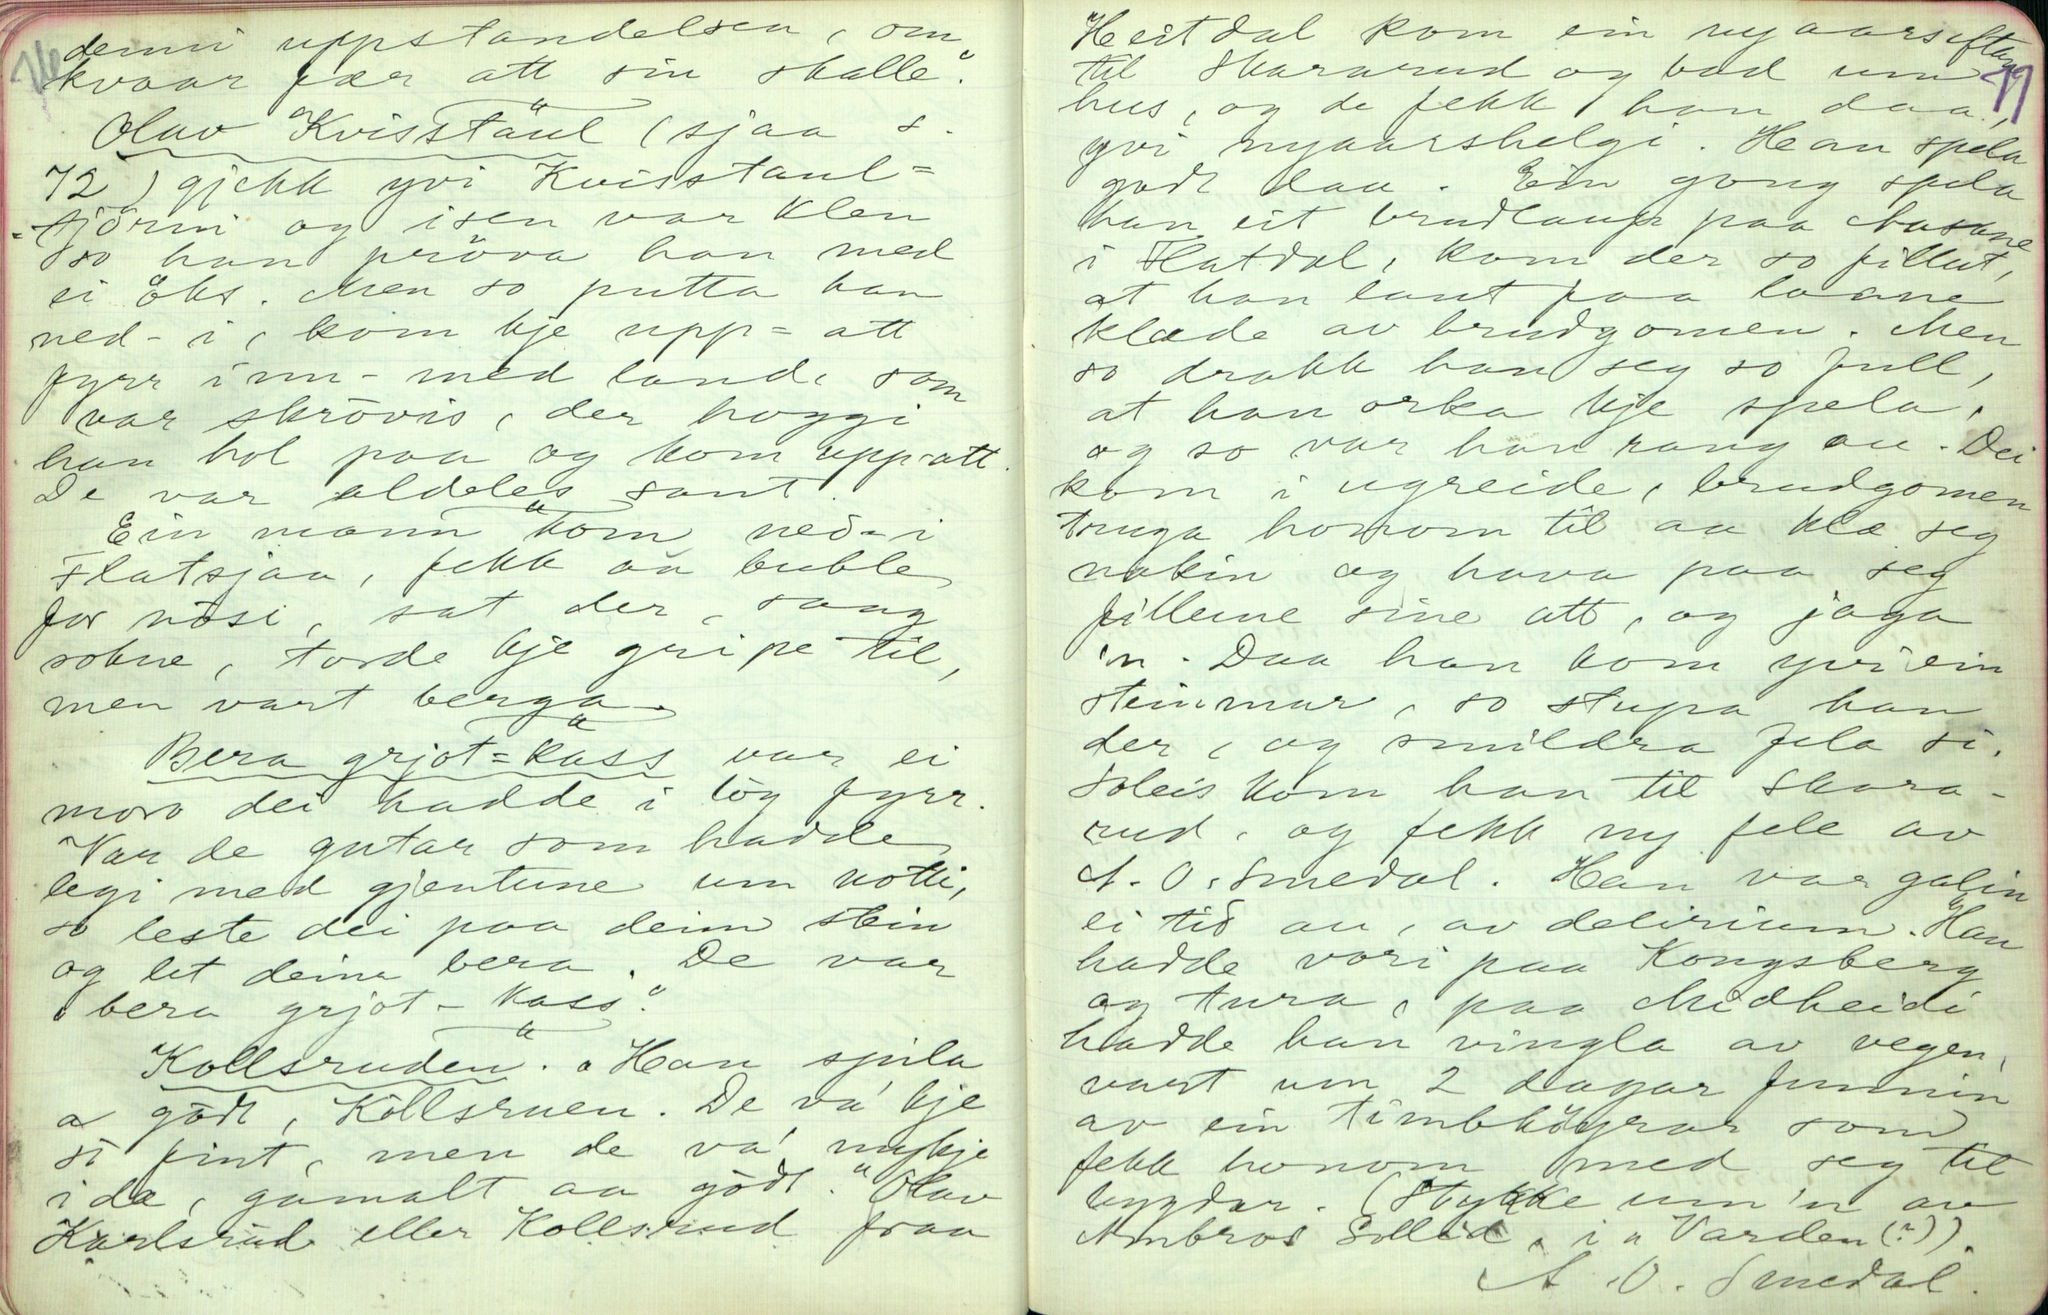 76
denni uppstandelsen, om
kvaar fær att sin skalle".
Olav Kvisstaul (sjaa s.
72) gjekk yvi Kvisstaul=
-tjörni og isen var klen
so han pröva han med
ei öks. Men so putta han
ned-i, kom kje upp-att
fyrr inn-med land, som
var skrövis, der hoggi
han hol paa og kom upp-att.
De var aldeles sant.
Ein mann kom ned-i
Flatsjaa, fekk aa buble
for nosi, sat der, song
sokne, torde kje gripe til,
men vart berga.
"Bera grjot=kass" var ei
moro dei hadde i log fyrr.
Var de gutar som hadde
legi med gjentune um notti,
so leste dei paa deim stein
og let deim bera. De var
"bera grjot-kass".
Kollsruden. "Han spila
a godt, Kollsruen. De va' kje
so fint, men de va' mykje
i da, gamalt aa godt." Olav
Karlsrud eller Kollsrud fraa
77
Heitdal kom ein nyaarsiftan
til Skararud og bad um
hus, og de fekk han daa,
yvi nyaarshelgi. Han spela
godt daa. Ein gong spela
han eit brudlaup paa Aasane
i Flatdal, kom der so fillut,
at han laut faa laane
klæde av brudgomen. Men
so drakk han seg so full,
at han orka kje spela,
og so var han rang au. Dei
kom i ugreide, brudgomen
truga honom til aa klæ seg
nakin og hava paa seg
fillune sine att, og jaga
'n. Daa han kom yvi ein
steinmur, so stupa han
der, og smildra fela si.
Soleis kom han til Skara-
rud, og fekk ny fele av
A. O. Smedal. Han var galin
ei tid au, av delirium. Han
hadde vori paa Kongsberg
og tura, paa Midheidi
hadde han vingla av vegen,
vart um 2 dagar funnin
av ein timbrkøyrar som
fekk honom med seg til
bygdar. (Stykke um'n av
Ambros Sollid, i "Varden(?)).
A. O. Smedal.